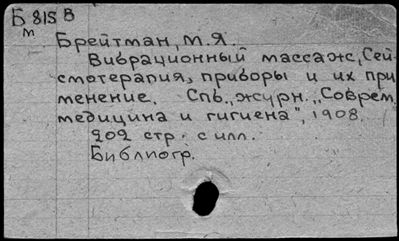 Б 815 В
м
Брейтман, М.Я.
Вибрационный массаж, Сей-
смотерапия, приборы и их при
менение. Спб., журн. „Соврем.
медицина и гигиена", 1908.
202 стр. с илл.
Библиогр.